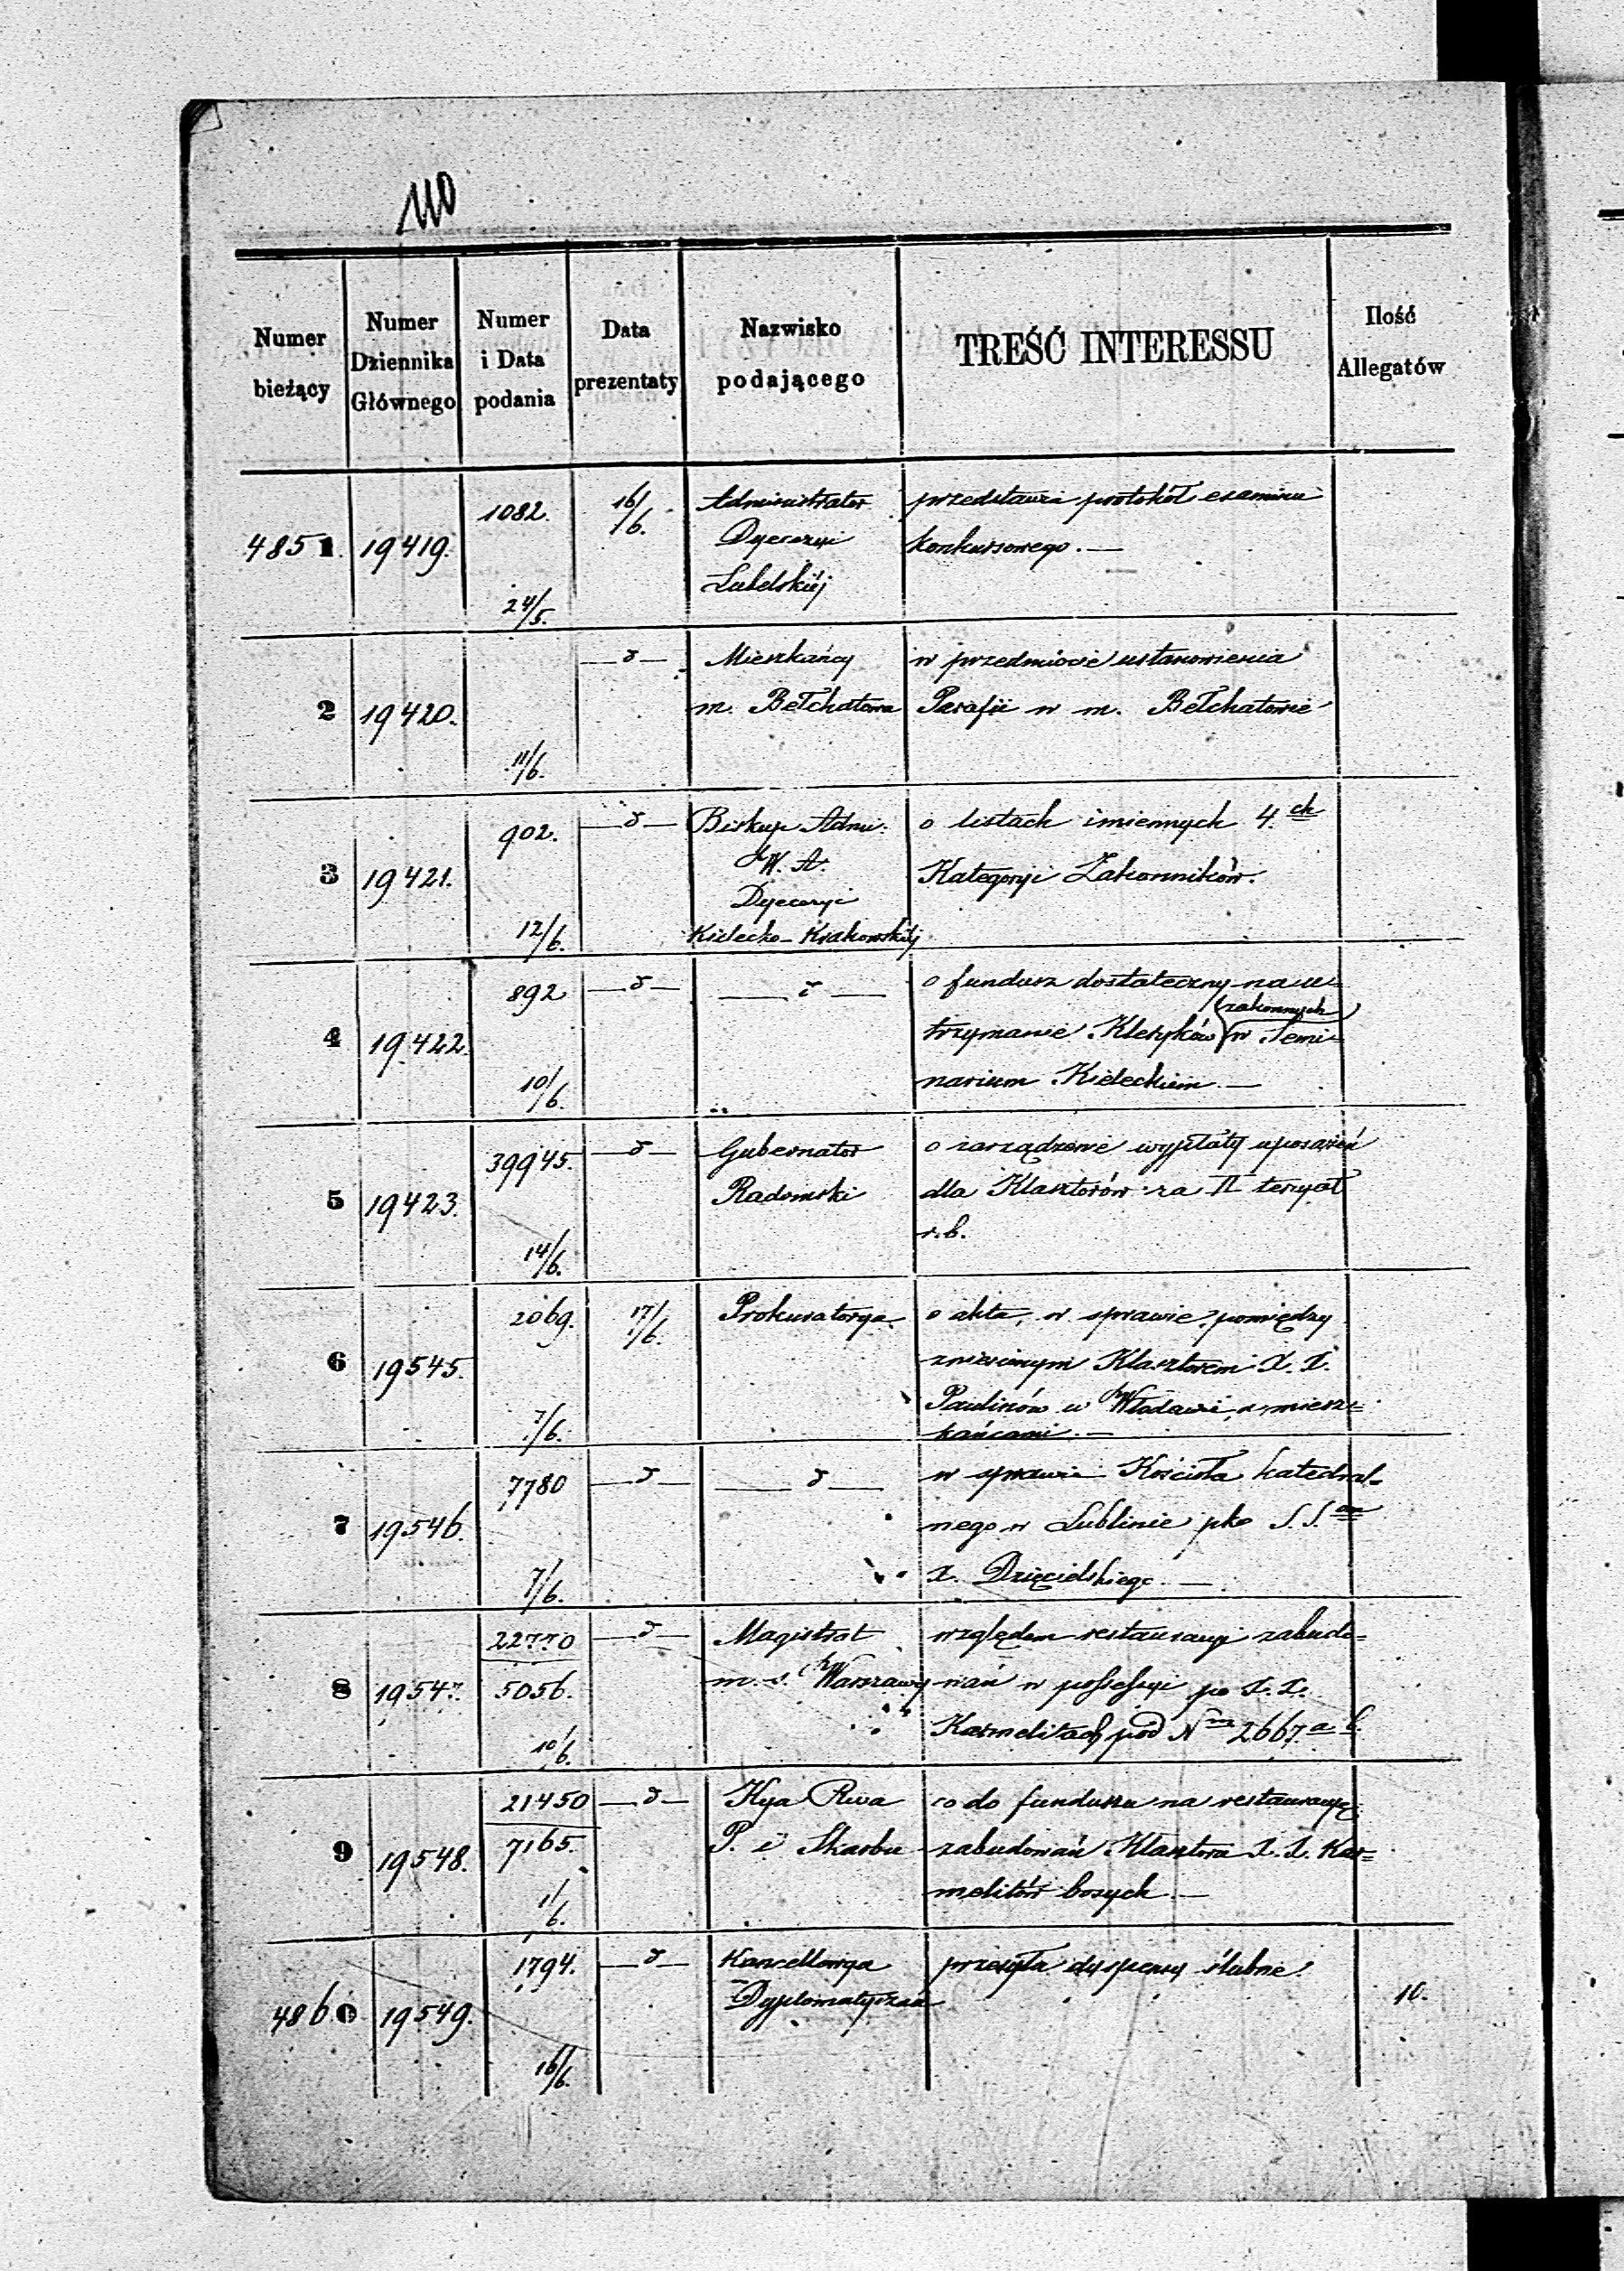 110
Numer bieżący
Numer Dziennika Głównego
Numer i Data podania
Data prezentaty
Nazwisko podającego
TREŚĆ INTERESSU
Ilość Allegatów
4851. 19419. 1082. 24/5. 16/6.
Administrator
Dyecezyi
Lubelskiéj
przedstawia protokół examinu
konkursowego. —
2 19420. 11/6. — d —
Mieszkańcy
m. Bełchatowa
w przedmiocie ustanowienia
Parafii w m. Bełchatowie
3 19421. 902. 12/6. — d —
Biskup Admi:
W. A.
Dyecezyi
Kielecko-Krakowskiéj
o listach imiennych 4. ch
Kategoryi Zakonników.
4 19422. 892 10/6. — d —
— d —
o fundusz dostateczny na u=
trzymanie Kleryków zakonnych w Semi=
narium Kieleckiem. —
5 19423. 39945. 14/6. — d —
Gubernator
Radomski
o zarządzenie wypłaty uposażeń
dla Klasztorów za II tercyał
r. b.
6 19545. 2069. 7/6. 17/6.
Prokuratorya
o akta, w sprawie pomiędzy
zniesionym Klasztorem X. X.
Paulinów w Włodawie, a miesz=
kańcami. —
7 19546. 7780 7/6. — d —
— d —
w sprawie Kościoła katedral-
nego w Lublinie pko S. S.
X. Dzięcielskiego. —
8 19547. 22770 5056. 10/6. — d —
Magistrat
m. s. Warszawy
względem restauracyi zabudo=
wań w possessyi po X. X.
Karmelitach pod N 2667. a b.
9 19548. 21450 7165. 1/6. — d —
Kja Rwa
P. i Skarbu
co do funduszu na restauracyę
zabudowań Klasztora X. X. Kar=
melitów bosych. —
4860 19549. 1794. 16/6. — d —
Kancellarya
Dyplomatyczna
przesyła dyspensy ślubne.
10.